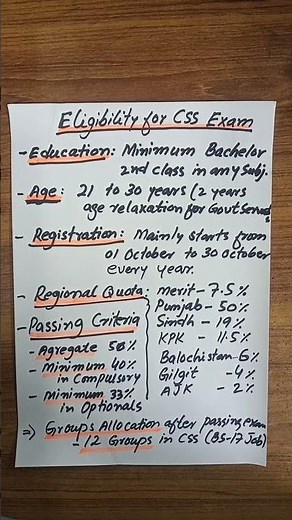 Eligibility for CSS Exam
- Education: Minimum Bachelor
2nd class in any Subj.
- Age: 21 to 30 years (2 years
age relaxation for Govt Servant
- Registration: Mainly starts from
01 October to 30 October
every year.
- Regional Quota: merit - 7.5%
Punjab - 50%
Sindh - 19%
KPK - 11.5%
Balochistan - 6%
Gilgit - 4%
AJK - 2%
- Passing Criteria
- Agregate 50%
- Minimum 40%
in Compulsory
- Minimum 33%
in Optionals
⇒ Groups Allocation after passing exam
- 12 Groups in CSS (BS-17 Job)